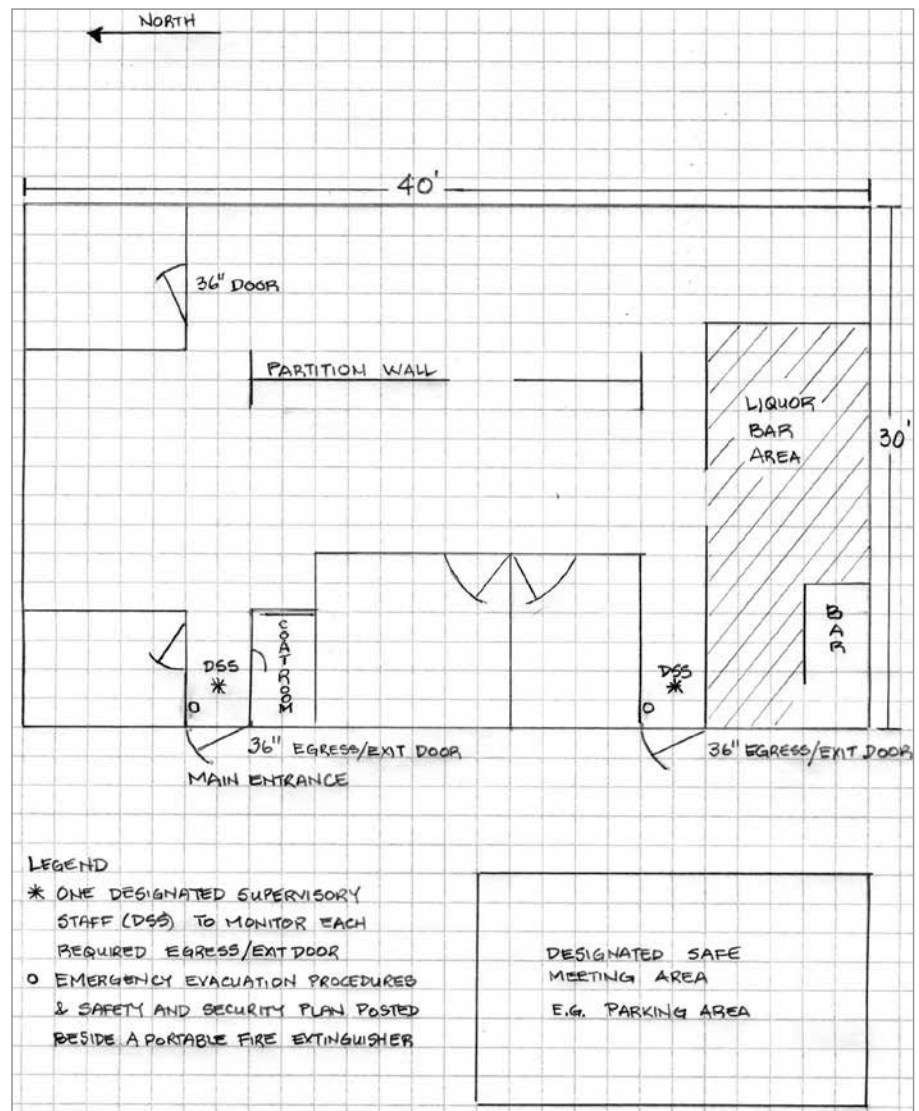 NORTH
40'
36" DOOR
PARTITION WALL
LIQUOR
BAR
AREA
30'
BAR
COATROOM
DSS
*
O
DSS
*
O
36" EGRESS/EXIT DOOR
36" EGRESS/EXIT DOOR
MAIN ENTRANCE
LEGEND
* ONE DESIGNATED SUPERVISORY
STAFF (DSS) TO MONITOR EACH
REQUIRED EGRESS/EXIT DOOR
O EMERGENCY EVACUATION PROCEDURES
& SAFETY AND SECURITY PLAN POSTED
BESIDE A PORTABLE FIRE EXTINGUISHER
DESIGNATED SAFE
MEETING AREA
E.G. PARKING AREA